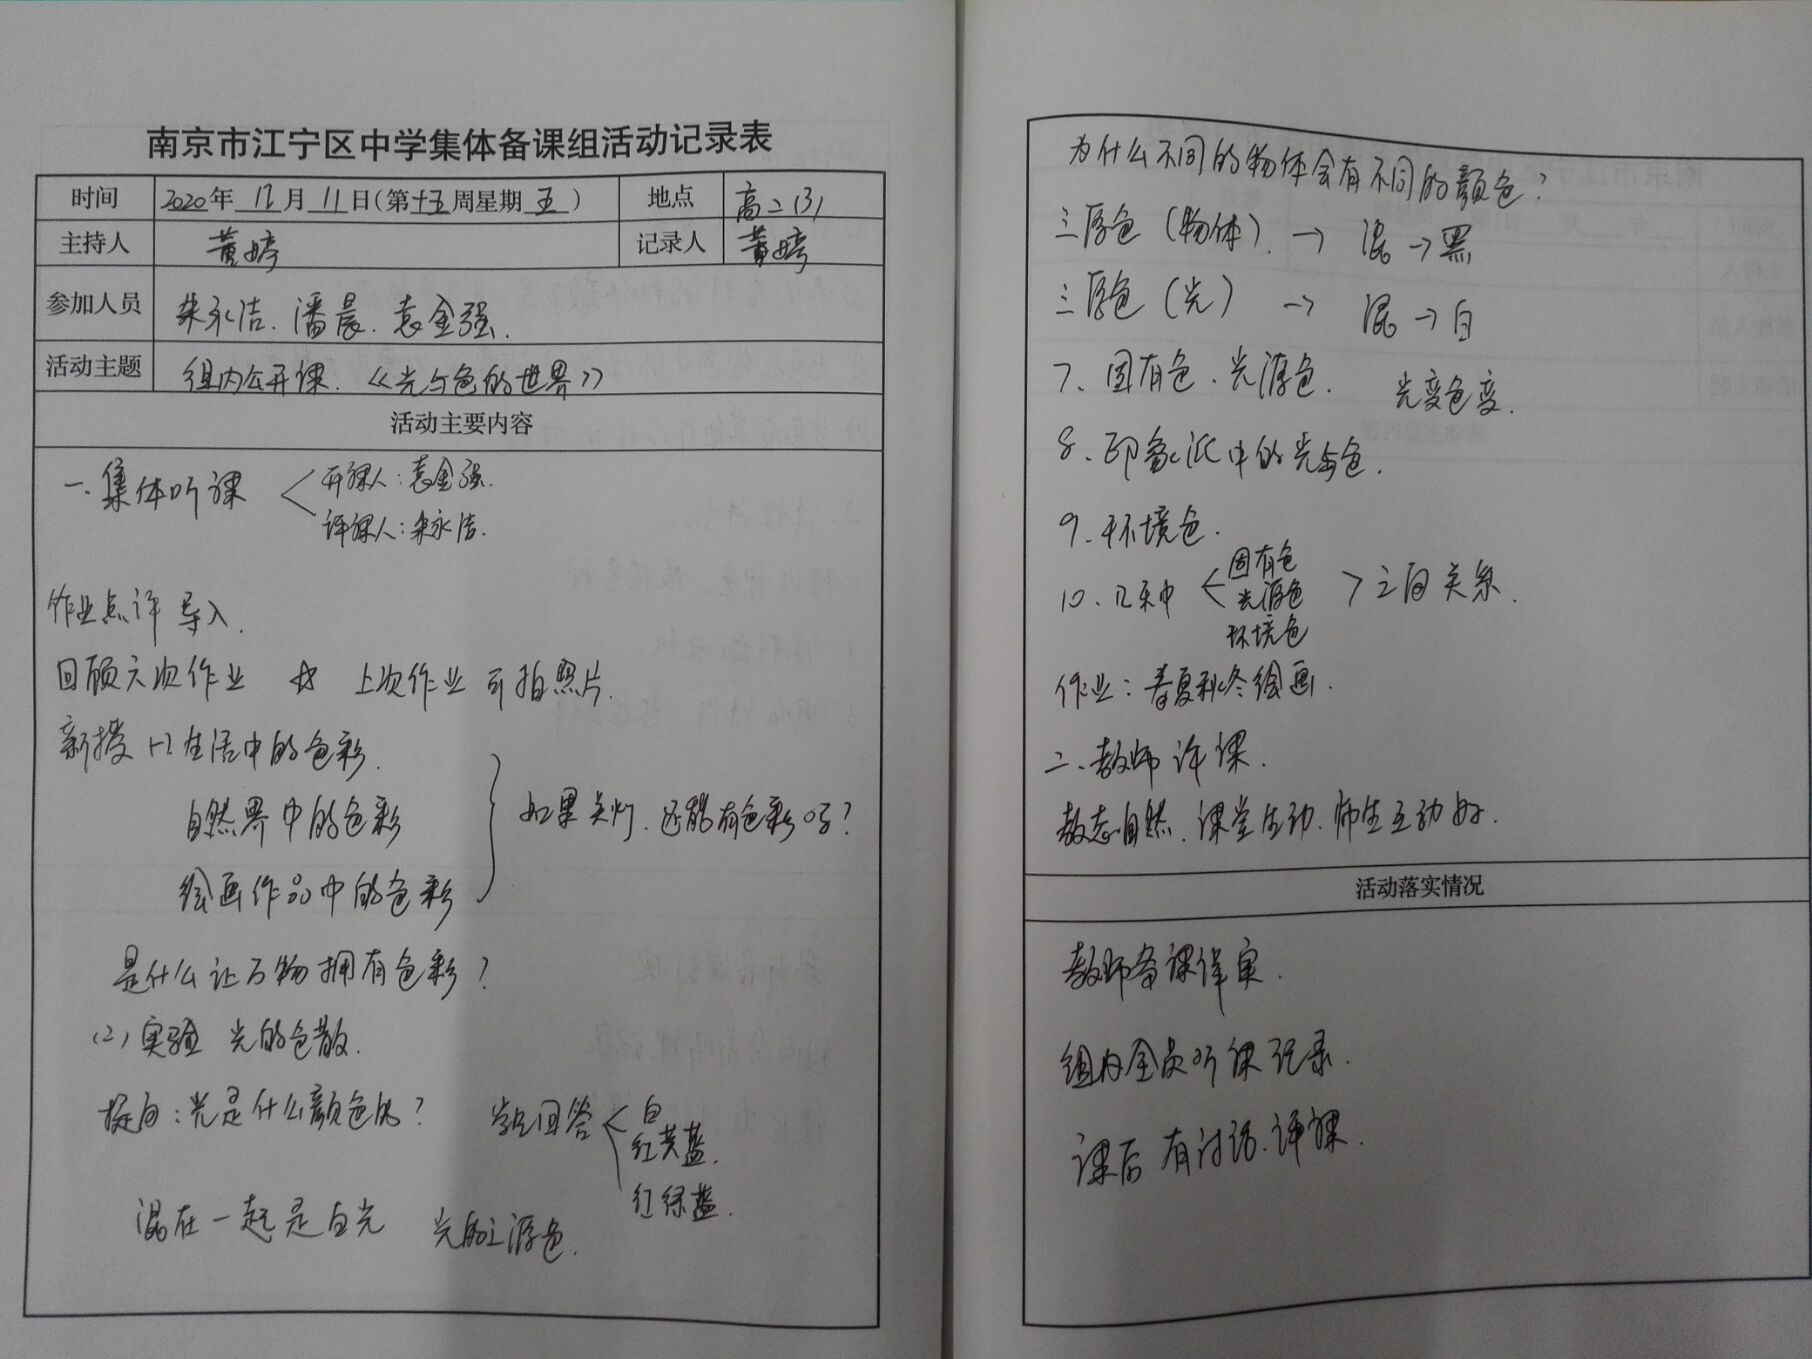 南京市江宁区中学集体备课组活动记录表
时间 2020年 12月 11日(第十五周星期五) 地点 高二(3)
主持人 黄婷 记录人 黄婷
参加人员 朱永洁、潘晨、袁金强.
活动主题 组内公开课.《光与色的世界》
活动主要内容
一.集体听课 开课人:袁金强.
评课人:朱永洁.
作业点评 导入.
回顾六次作业 上次作业 可拍照片.
新授 (1)生活中的色彩.
自然界中的色彩
绘画作品中的色彩
如果关灯.还能有色彩吗?
是什么让万物拥有色彩?
(2)实验 光的色散.
提问:光是什么颜色的? 学生回答 白
红黄蓝.
红绿蓝.
混在一起是白光 光的三原色.
为什么不同的物体会有不同的颜色?
三原色(物体).→ 混→黑
三原色(光) → 混→白
7、固有色、光源色. 光变色变.
8、印象派中的光与色.
9、环境色.
10、几乎中 < 固有色
光源色
环境色 > 之间关系.
作业:春夏秋冬绘画.
二、教师评课.
教态自然、课堂生动.师生互动好.
活动落实情况
教师备课详实.
组内全员听课记录.
课后有讨论.评课.